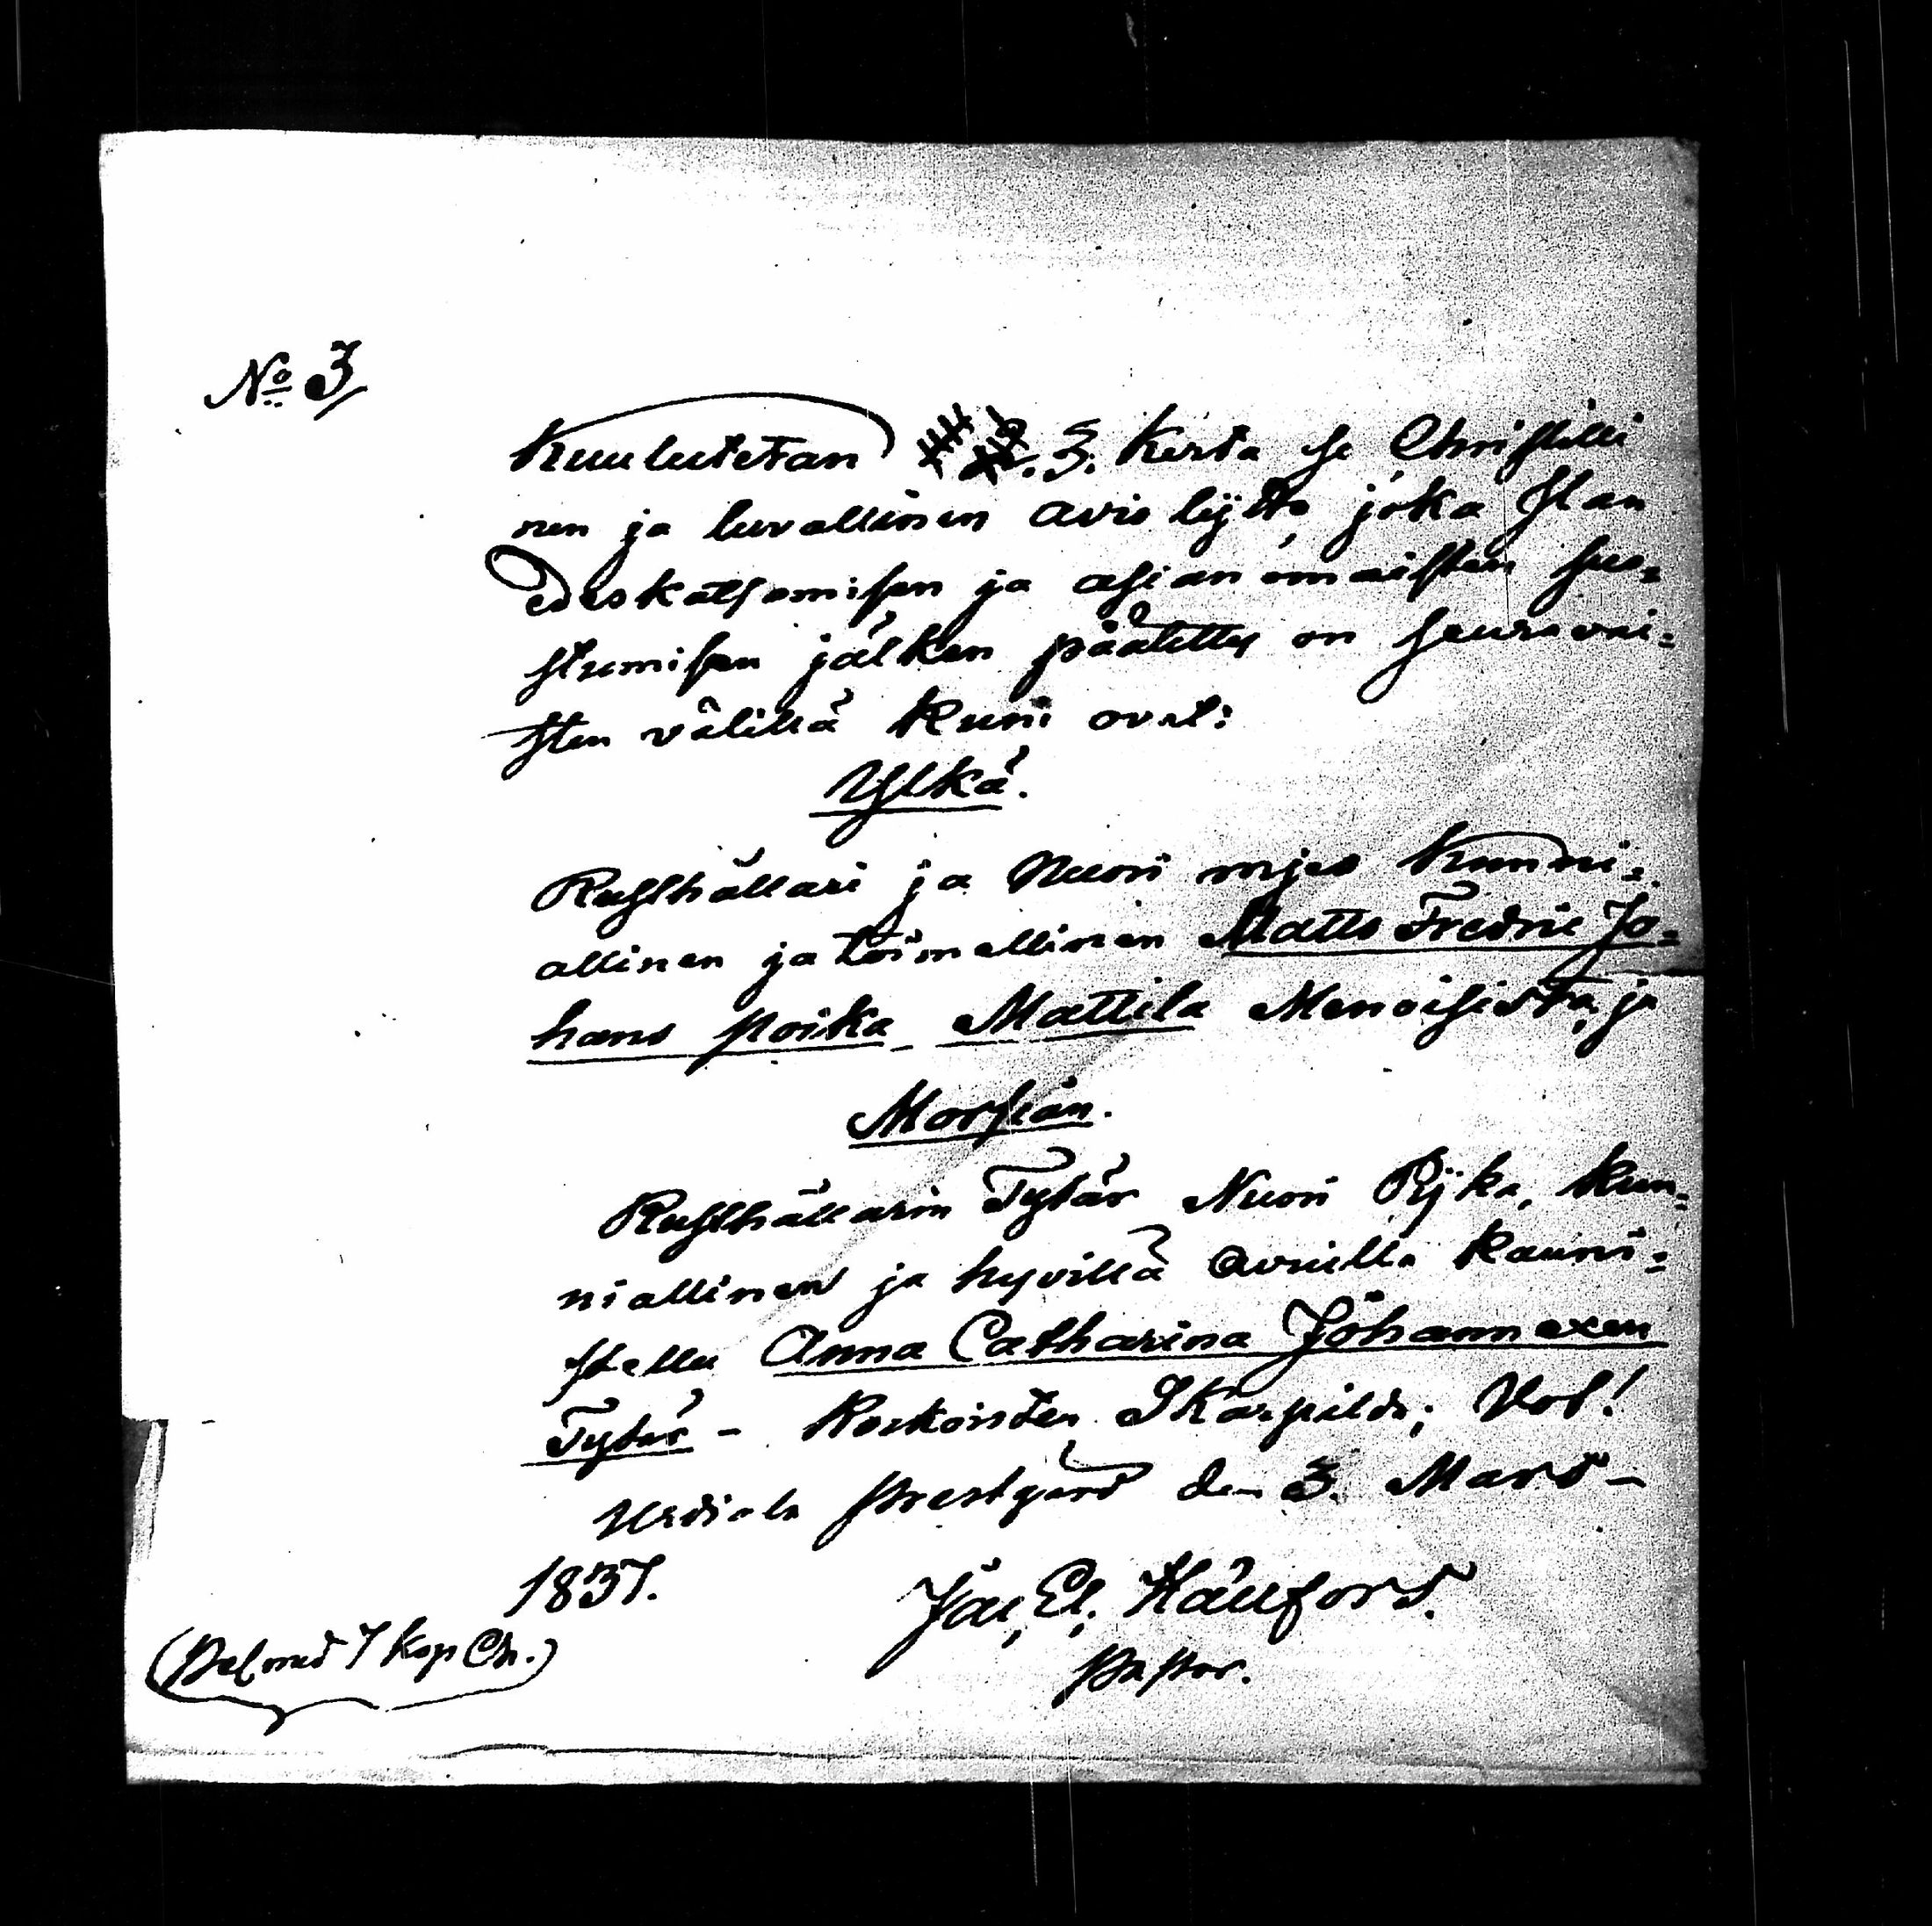 No 3
Kuulutetan 3. Kerta se Christilli
nen ja luvallinen avio lijtto, joka Jlan
Edeskatsomisen ja asian omaisten suo=
stumisen jälken päätetty on seuravai=
sten välillä kuin ovat:
Ylkä.
Rusthållari ja Nuori mjes kunni=
allinen ja toimellinen Matts Fredric Jo=
hans poika Mattila Menoisista, ja
Morsian.
Rusthållarin Tytär Nuori Pijka, kun=
niallinen ja hyvillä avuilla kauni=
stettu Anna Catharina Johannexen
Tytär - Koskoisten Skarpilda; Vot!
Urdiala Prestgård d. 3. Mars
1837.
Jac. El. Hällfors.
Pastor.
(Bet med 7 Kop Ch.)